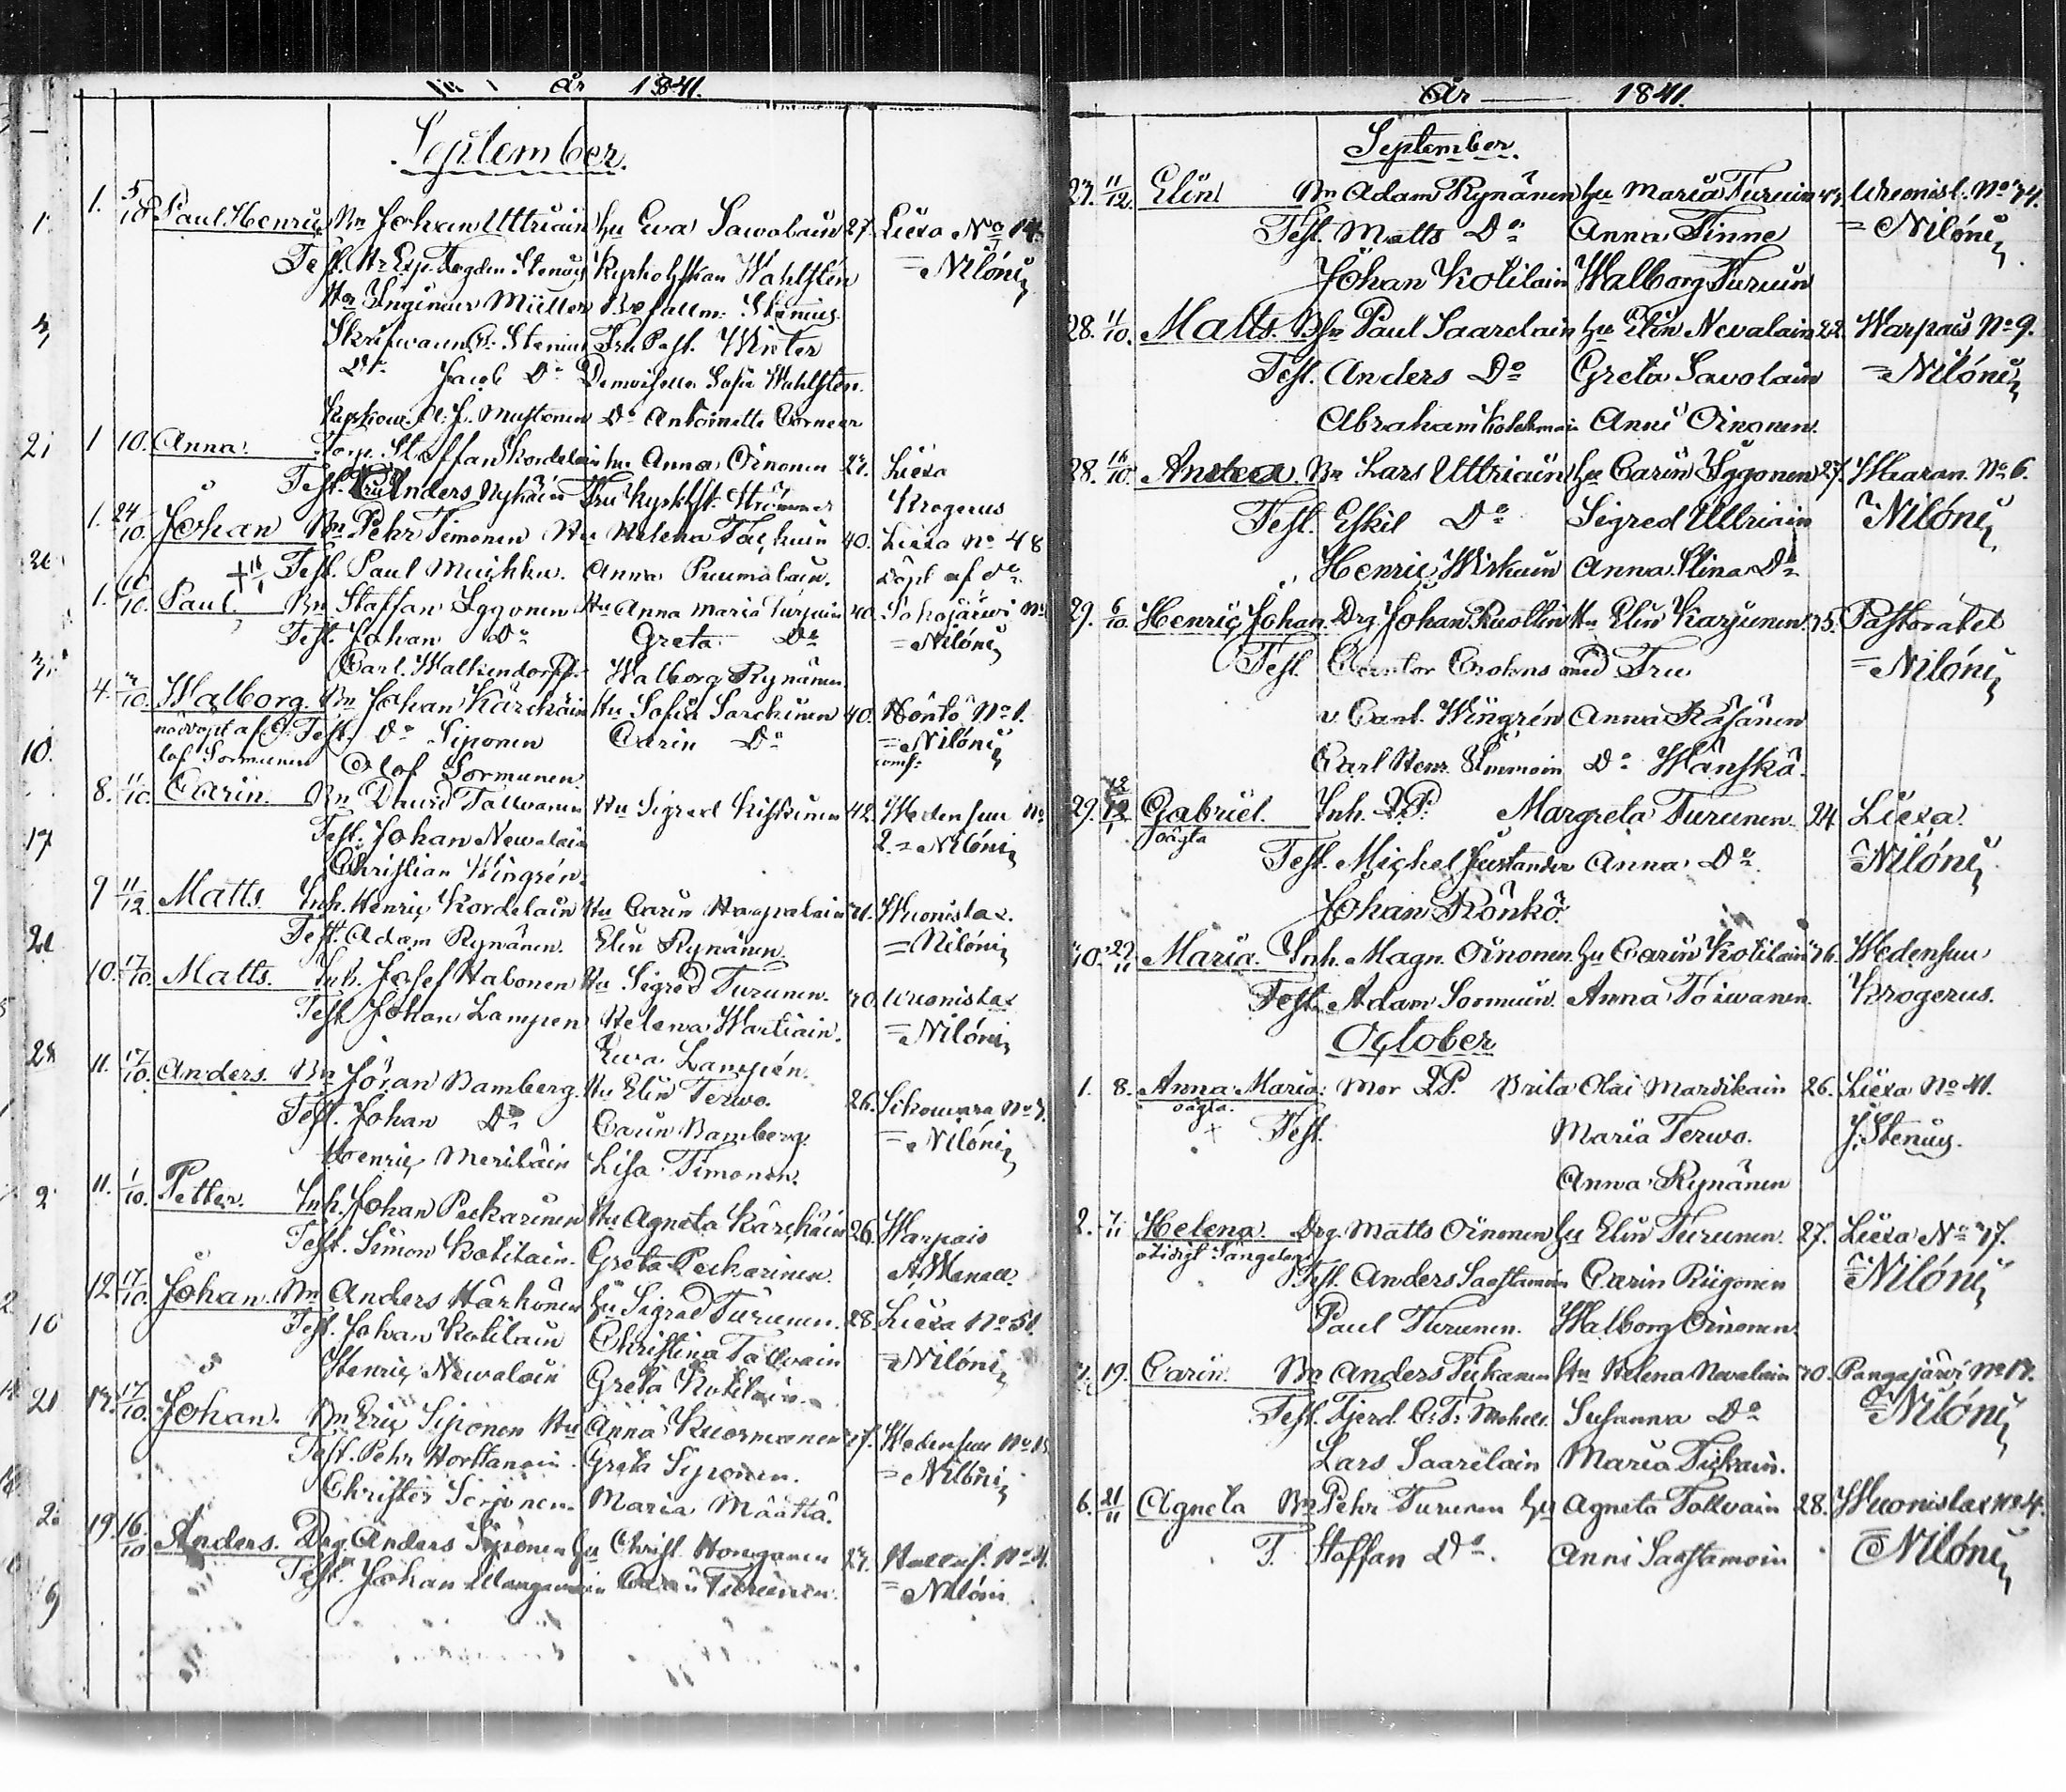 År 1841.
September.
1. 5/10 Paul Henric Bn Johan Uttriain Hu Eva Sawolain 27. Liexa No 14.
Test. Stenius Kyrkohfskan Wahlsten = Nilóni
Hr Ingenieur Müller Befallm. Stenius
Stenius Fru Past. Winter
Do Jacob Do Demoiselle Sofia Wahlsten.
A. J. Mustonen Do Antoinette Corneer
1 10. Anna. Torp. Staffan Kordelain hu Anna Oinonen 27. Liexa
Test. Anders Nykäin Fru Krogerus
1. 24/10 Johan Bn Pehr Timonen Hu Helena Taskuin 40. Liexa No 48
Test. Paul Muikku. Anna Puumalain. döpt af do
1. 10. Paul. Bn Staffan Iggonen Hu Anna Maria Turpuin 40. Sokojärwi No
Test. Johan Do Greta Do = Nilóni
Carl Walkendorff. Walborg Rynänen
4. 10. Walborg. Bn Johan Kärckäin Hu Sofia Sorckinen 40. Höntö No 1.
nöddöpt af O- Test. Do Siponen Carin Do = Nilóni
lof Sormunen Olof Sormunen conf:
8. 11/10. Carin. Bn David Tallwanen Hu Sigred Kiiskinen 42. Wedensuu No
Test. Johan Newalain 2. = Nilóni
Christian Wingrén.
9 11/12. Matts. Inh. Henric Kordelain Hu Carin Haapalain 31. Wuonislax.
Test. Adam Rynänen. Elin Rynänen. = Nilóni
10. 17/10. Matts. Inh. Josef Habonen Hu Sigred Turunen. 30. Wuonislax
Test. Johan Lampen Helena Wartiain. = Nilóni
Ewa Lampén.
11. 17/10. Anders. Bn Jöran Bamberg. Hu Elin Terwo. 26. Sikowara No 7.
Test. Johan Do Carin Bamberg. = Nilóni
Henric Meriläin Lisa Timonen.
11. 1/10. Petter. Inh. Johan Peckarinen Hu Agneta Kärckäin 26. Warpais
Test. Simon Kotilain. Greta Peckarinen. A. Wenell.
12. 17/10. Johan. Bn Anders Härkönen Hu Sigred Turunen. 28. Liexa No 51.
Test. Johan Kotilain Christina Tallvain = Nilóni
Henric Newalain Greta Kotilain.
17. 17/10. Johan. Bn Eric Siponen Hu Anna Kuormanen 27. Wedensuu No 18
Test. Pehr Hortanain. Greta Siponen. = Nilóni
Christer Siponen. Maria Määttä.
19. 16/10 Anders. Drg. Anders Siponen Hu Christ. Honganen 27. No 4.
Test. Johan Carin Turunen. = Nilóni
År 1841.
September.
27. 11/12. Elin Bn Adam Rynänen hu Maria Turuin 43. Wuonisl. No 34.
Test. Matts Do Anna Finne = Nilóni
Johan Kotilain Walborg Turuin
28. 11/10. Matts. Bsn Paul Saarelain hu Elin Newalain 22. Warpais No 9.
Test. Anders Do Greta Savolain = Nilóni
Abraham Kolehmain Anni Oinonen.
28. 16/10. Andrea. Bn Lars Uttriain hu Carin Iggonen 27. Waaran. No 6.
Test. Eskil Do Sigred Uttriain = Nilóni
Henric Wirkuin Anna Stina Do
29. 6/10. Henric Johan. Drg Johan Kuollin Hu Elin Karjunen 35. Pastoratet
Test. Cantor Crohns med Fru = Nilóni
v. Cant. Wingrén Anna Räsänen
Carl Henr. Immoin Do Wänskä.
29. 12 Gabriel. Inh. Q.P. Margreta Turunen. 24 Liexa.
oägta Test. Michel Justander Anna Do = Nilóni
Johan Rönkö.
30. 22/11 Maria. Inh. Magn. Oinonen. hu Carin Kotilain 36. Wedensuu
Test. Adam Sormuin. Anna Toiwanen. Krogerus.
October
1. 8. Anna Maria: Mor Q.P. Brita Olai Mardikain 26. Liexa No 41.
oägta. Test. Maria Terwo. J. Stenius.
Anna Rynänen
2. 7/11 Helena. Drg. Matts Oinonen hu Elin Turunen. 27. Liexa No 37.
otidigt Sängelag Test. Anders Saastamoin Carin Riigonen = Nilóni
Paul Turunen. Walborg Oinonen.
3. 19. Carin. Bn Anders Tickanen Hu Helena Nevalain 30. Pangajärwi No 17.
Test. Fjerd. C. F. Mohell. Susanna Do = Nilóni
Lars Saarelain Maria Tickain.
6. 21/11 Agneta Bn Pehr Turunen hu Agneta Tollvain 28. Wuonislax No 4.
T. Staffan Do. Anni Saastamoin = Nilóni